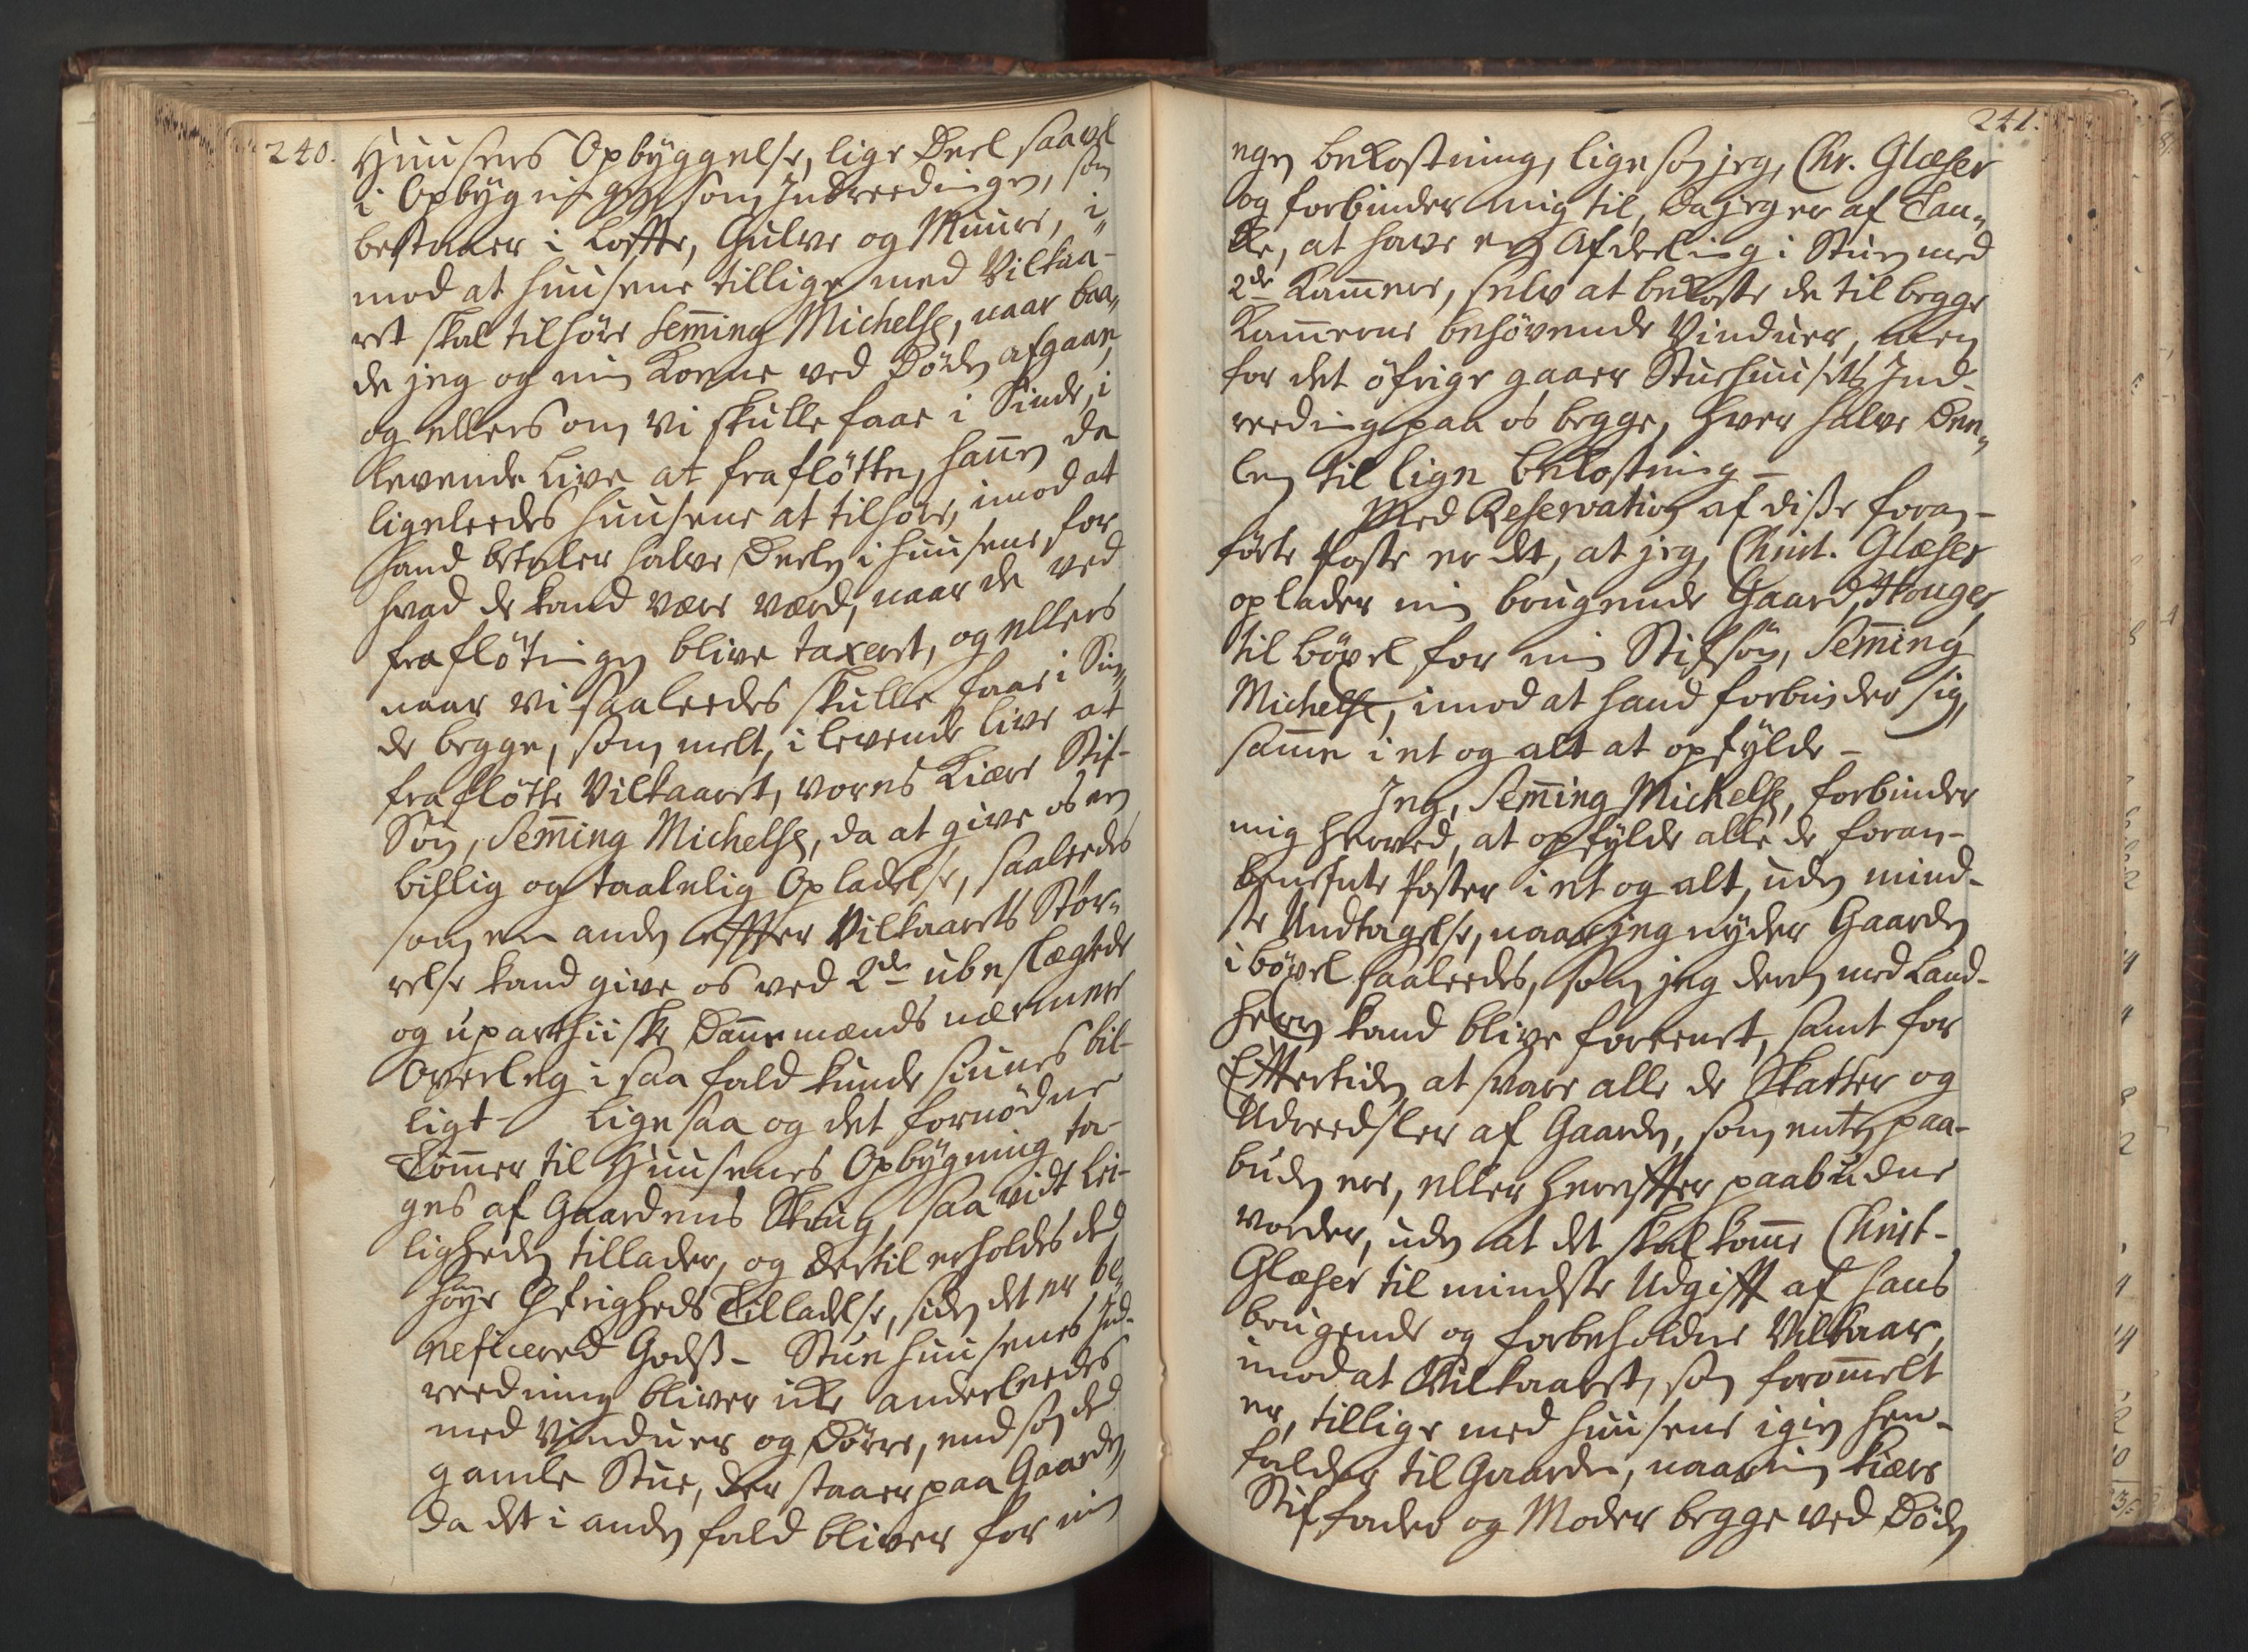 240.
Huusens Opbyggelse, lige Deel saavel
i Opbygningen som Indreedingen, som
bestaaer i Loffte, Gulve og Muure, i„
mod at huusene tillige med Vilkaa-
ret skal tilhøre Semming Michelsen, naar baa„
de jeg og min Konne ved Døden afgaar,
og ellers om vi skulle faae i Sinde, i
levende Live at fraflötte, hannem da
ligeleedes huusene at tilhøre, imod at
hand betaler halve Deelen i huusene, for
hvad de kand være værd, naar de ved
fraflötningen blive taxeret, og ellers
naar vi saaleedes skulle faae i Sin„
de begge, som melt, i levende live at
fraflötte Vilkaaret, vores Kiære Stif-
Søn, Semming Michelsen, da at give os en
billig og taalelig Opladelse, saaleedes
som en anden effter Vilkaarets Stør„
relse kand give os ved 2de ubeslægtede
og upartiiske Dannemænds nærmere
Overleg i saa fald kunde siunes bil-
ligt - Ligesaa og det fornødne
Tømmer til Huusenes Opbÿgning ta-
ges af Gaardens Skoug, saa vidt Lei-
ligheden tillader, og dertil erholdes ded
høye Øfrigheds Tilladelse, siden det er be„
neficered Gods - Stuehuusenes Ind-
reedning bliver icke anderleedes
med Vinduer og Dörre, end som ded
gamle Stue, der staaer paa Gaarden,
da det i anden fald bliver for min
241.
egen bekostning, ligesom jeg, Chr. Glæser
og forbinder mig til, da jeg er af Tan„
ke, at have en Afdeeling i Stuen med
2de Kammere, selv at bekoste de til begge
Kammerne behövende Vinduer, men
for det öfrige gaaer Stuehuusets Ind-
reeding paa os begge, hver halve Dee„
len til lige bekostning -
Med Reservation af disse foran-
förte Poste er det, at jeg, Christ. Glæser
oplader min brugende Gaard, Houger,
til böxel for min Stifsön, Semming
Michelsen, imod at hand forbinder sig,
samme i et og alt at opfylde -
Jeg, Semming Michelsen, forbinder
mig herved, at opfÿlde alle de foran-
benefnte Poster i et og alt, uden mind-
ste Undtagelse, naar jeg nÿder Gaarden
i böxel saaleedes, som jeg derom med Land-
herren kand blive foreenet, samt for
Efftertiden at svare alle de Skatter og
Udreedsler af Gaarden, som enten paa-
buden ere, eller hereffter paabudne
vorder, uden at det skal komme Christ-
Glæser til mindste Udgifft af hans
brugende og forbeholdne Vilkaar,
imod at Vilkaaret, som forommelt
er, tillige med huusene igien hen-
falder til Gaarden, naar min kiære
Stiffader og Moder begge ved Döden